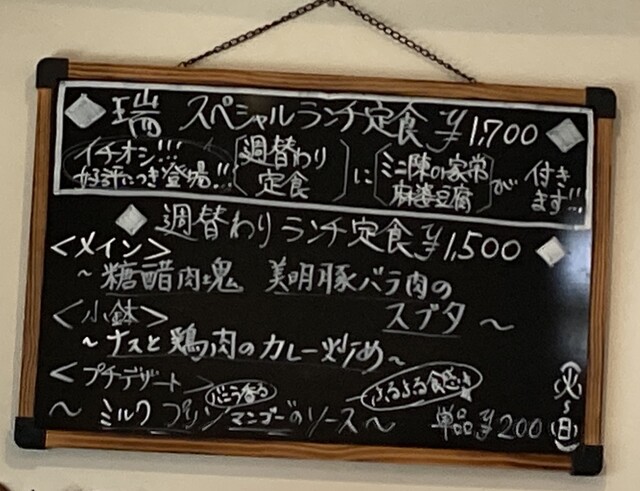 瑞 スペシャルランチ定食 ¥1,700
イチオシ!!! 好評につき登場!!
週替わり定食 に ミニ陳の家常麻婆豆腐 が 付きます!!!
週替わりランチ定食 ¥1,500
<メイン>
~糖醋肉塊 美明豚バラ肉の
スブタ~
<小鉢>
~ナスと鶏肉のカレー炒め~
<プチデザート> バニラ香る ぷるぷる食感
~ミルクプリン マンゴーのソース~ 単品¥200
(火~日)